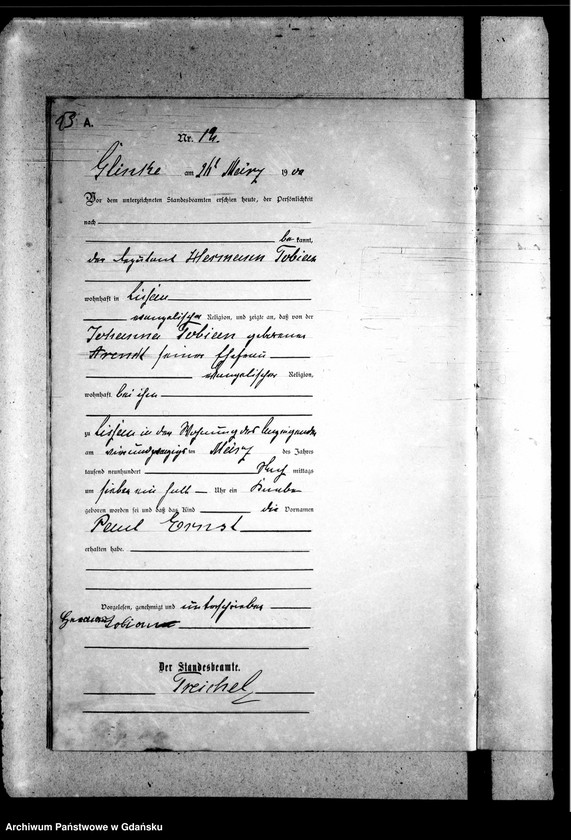 B A.
Nr. 12.
Glinke am 26 März 1900
Vor dem unterzeichneten Standesbeamten erschien heute, der Persönlichkeit
nach
be kannt,
der Deputant Hermann Tobien
wohnhaft in Lissen
evangelischer Religion, und zeigte an, daß von der
Johanna Tobien geborenen
Arendt seiner Ehefrau
evangelischer Religion,
wohnhaft bei ihm
zu Lissen in der Wohnung des Anzeigenden
am vierundzwanzigsten März des Jahres
tausend neunhundert Nach mittags
um sieben ein halb Uhr ein Knabe
geboren worden sei und daß das Kind die Vornamen
Paul Ernst
erhalten habe.
Vorgelesen, genehmigt und unterschrieben
Hermann Tobien
Der Standesbeamte.
Treichel
Archiwum Państwowe w Gdańsku